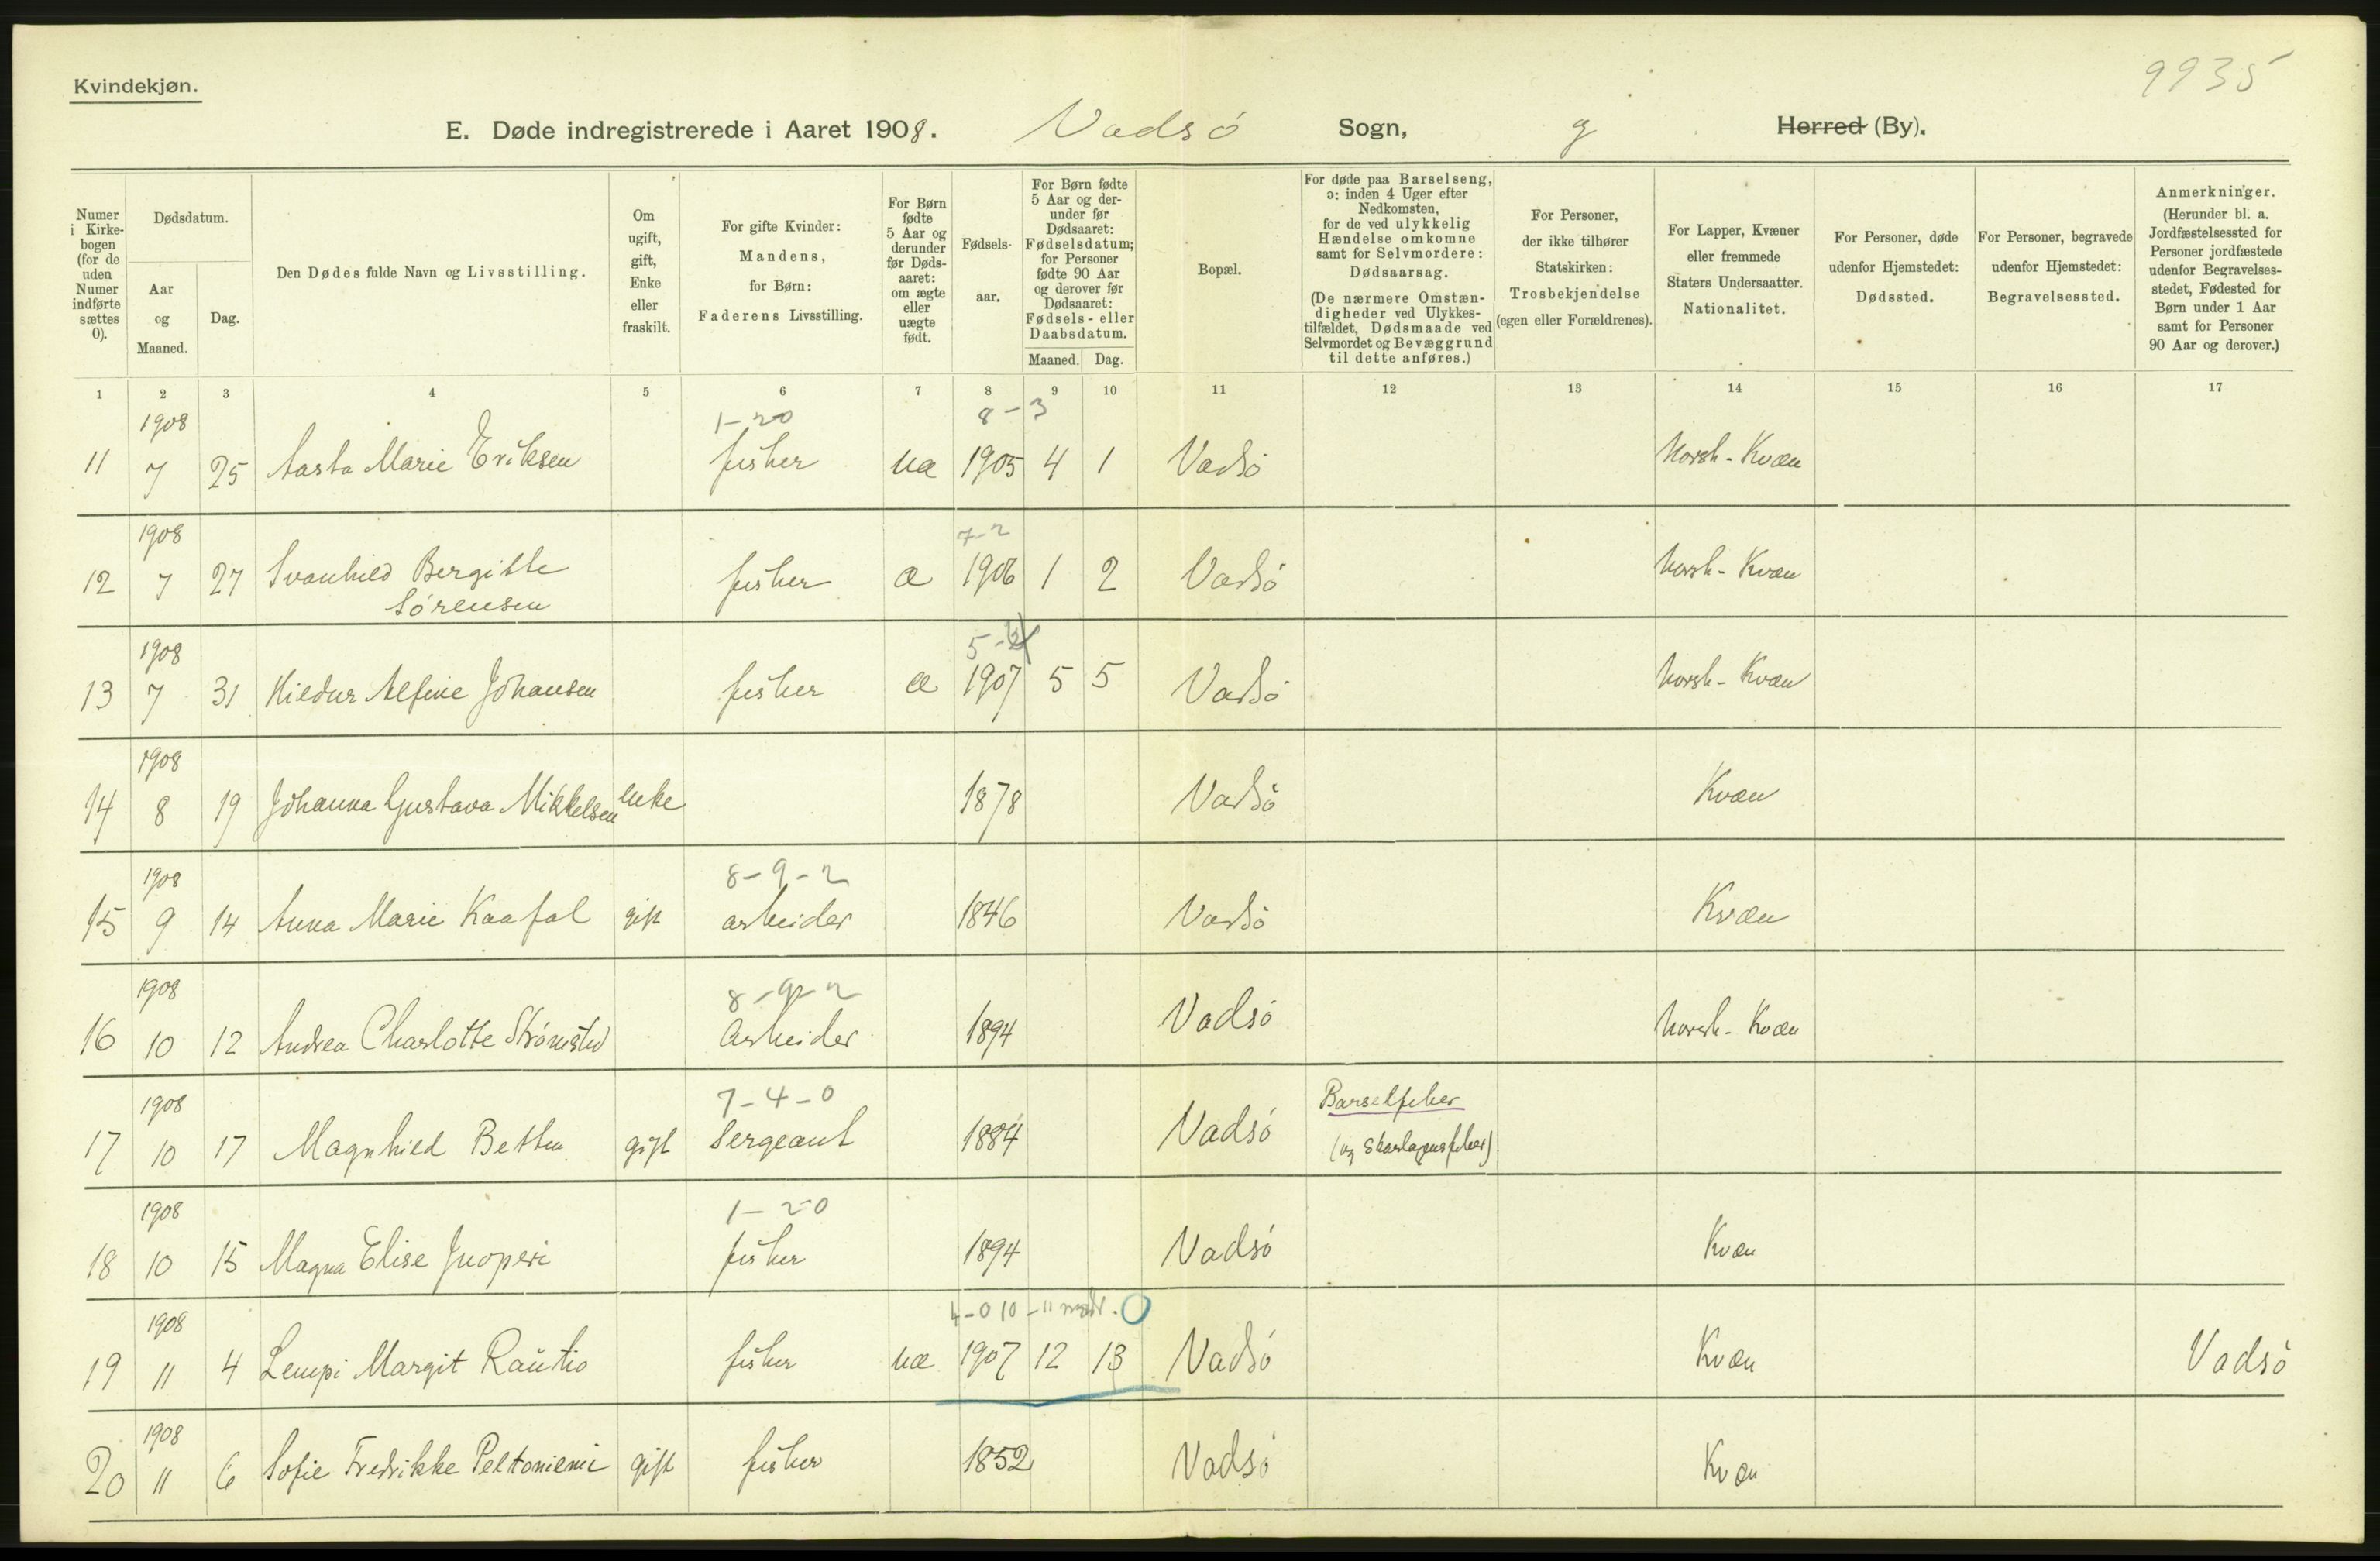 9935
Kvindekjøn.
E. Døde indregistrerede i Aaret 1908. Vadsø Sogn, Herred (By).
Numer i Kirkebogen (for de uden Numer indførte sættes 0).
Dødsdatum.
Aar og Maaned.
Dag.
Den Dødes fulde Navn og Livsstilling.
Om ugift, gift, Enke eller fraskilt.
For gifte Kvinder: Mandens, for Børn: Faderens Livsstilling.
For Børn fødte 5 Aar og derunder før Døds-aaret: om ægte eller uægte født.
Fødsels-aar.
For Børn fødte 5 Aar og der-under før Dødsaaret: Fødselsdatum; for Personer fødte 90 Aar og derover før Dødsaaret: Fødsels- eller Daabsdatum.
Maaned. Dag.
Bopæl.
For døde paa Barselseng, ɔ: inden 4 Uger efter Nedkomsten, for de ved ulykkelig Hændelse omkomne samt for Selvmordere: Dødsaarsag.
(De nærmere Omstæn-digheder ved Ulykkes-tilfældet, Dødsmaade ved Selvmordet og Bevæggrund til dette anføres.)
For Personer, der ikke tilhører Statskirken: Trosbekjendelse (egen eller Forældrenes).
For Lapper, Kvæner eller fremmede Staters Undersaatter. Nationalitet.
For Personer, døde udenfor Hjemstedet: Dødssted.
For Personer, begravede udenfor Hjemstedet: Begravelsessted.
Anmerkninger.
(Herunder bl. a. Jordfæstelsessted for Personer jordfæstede udenfor Begravelses-stedet, Fødested for Børn under 1 Aar samt for Personer 90 Aar og derover.)
1 2 3 4 5 6 7 8 9 10 11 12 13 14 15 16 17
1908 1-20 8-3
11 7 25 Aasta Marie Eriksen fisker uæ 1905 4 1 Vadsø Norsk-Kvæn
1908 7-2
12 7 27 Svanhild Bergitte fisker æ 1906 1 2 Vadsø Norsk-Kvæn
Sørensen
1908
13 7 31 Hildur Alfine Johansen fisker æ 1907 5 5 Vadsø Norsk-Kvæn
1908
14 8 19 Johanna Gustava Mikkelsen enke 1878 Vadsø Kvæn
1908 8-9-2
15 9 14 Anna Marie Kaafal gift arbeider 1846 Vadsø Kvæn
1908 8-9-2
16 10 12 Andrea Charlotte Strømsted Arbeider 1894 Vadsø Norsk-Kvæn
1908 7-4-0 Barselfeber
17 10 17 Magnhild Betten gift Sergeant 1884 Vadsø (og Skarlagensfeber)
1908 1-2-0
18 10 15 Magna Elise Juoperi fisker 1894 Vadsø Kvæn
1908 4-0 10-11 mdr.
19 11 4 Lempi Margit Rautio fisker uæ 1907 12 13 Vadsø Kvæn Vadsø
1908
20 11 6 Sofie Fredrikke Peltoniemi gift fisker 1852 Vadsø Kvæn